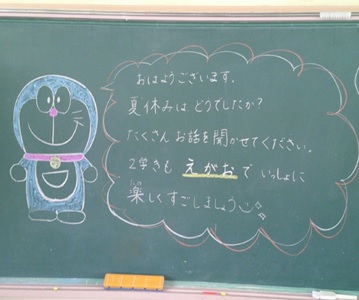 おはようございます。
夏休みは どうでしたか?
たくさん お話を聞かせてください。
2学きも えがおで いっしょに
楽しくすごしましょう